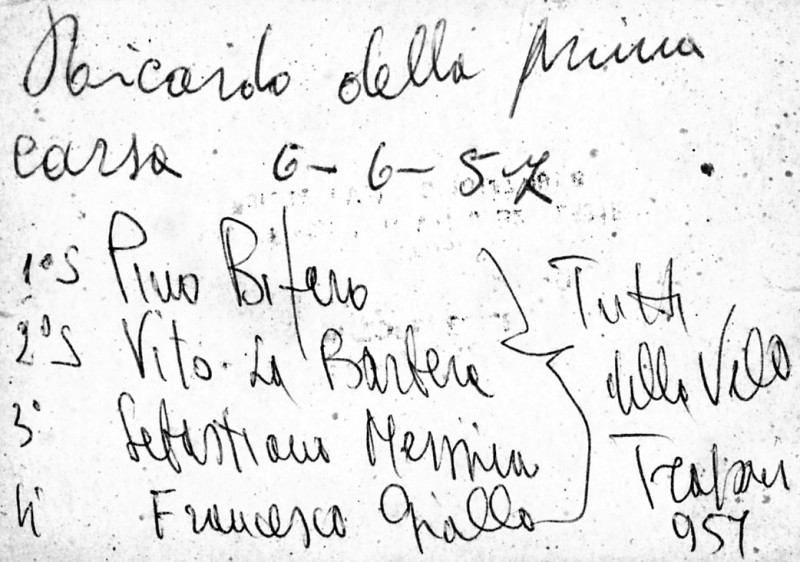 Ricordo della prima
corsa 6-6-57
1° S Pino Bifero
2° S Vito La Barbera
3° Sebastiano Messina
4° Francesco Giallo
Tutti
della Velo
Trapani
957